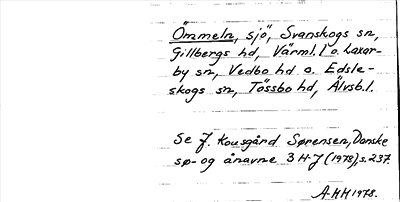 Ömmeln, sjö, Svanskogs sn,
Gillbergs hd, Värml. l o. Laxar-
by sn, Vedbo hd o. Edsle-
skogs sn, Tössbo hd, Älvsb. l.
Se J. Kousgård Sørensen, Danske
sø- og ånavne 3 H-J (1978), s. 237.
AHH 1978.